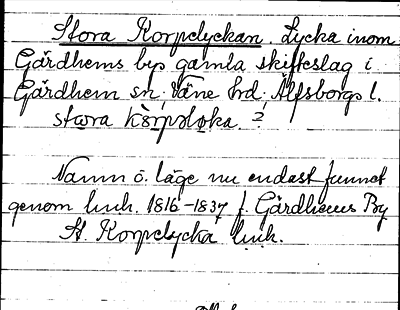 Stora Korpelyckan. Lycka inom
Gärdhems bys gamla skifteslag i
Gärdhem sn, Väne hd, Älfsborgs l.
stora kɷrpəlɷka. 2
Namn o. läge nu endast funnet
genom lmh. 1816-1837 f. Gärdhems By
St. Korpelycka lmh.